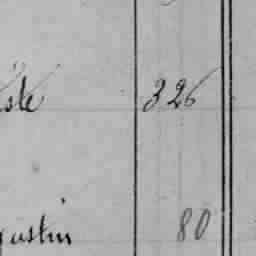 ste 326
gustin 80